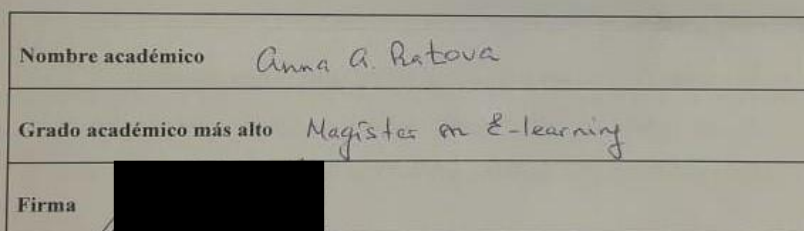 Nombre académico Anna A. Ratova
Grado académico más alto Magíster en E-learning
Firma